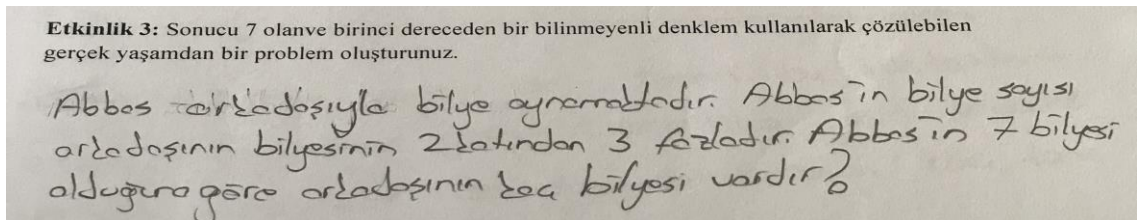 Etkinlik 3: Sonucu 7 olanve birinci dereceden bir bilinmeyenli denklem kullanılarak çözülebilen
gerçek yaşamdan bir problem oluşturunuz.
Abbas arkadaşıyla bilye oynamaktadır. Abbas'in bilye sayısı
arkadaşının bilyesinin 2 katından 3 fazladır. Abbas'in 7 bilyesi
olduğuna göre arkadaşının kaç bilyesi vardır?